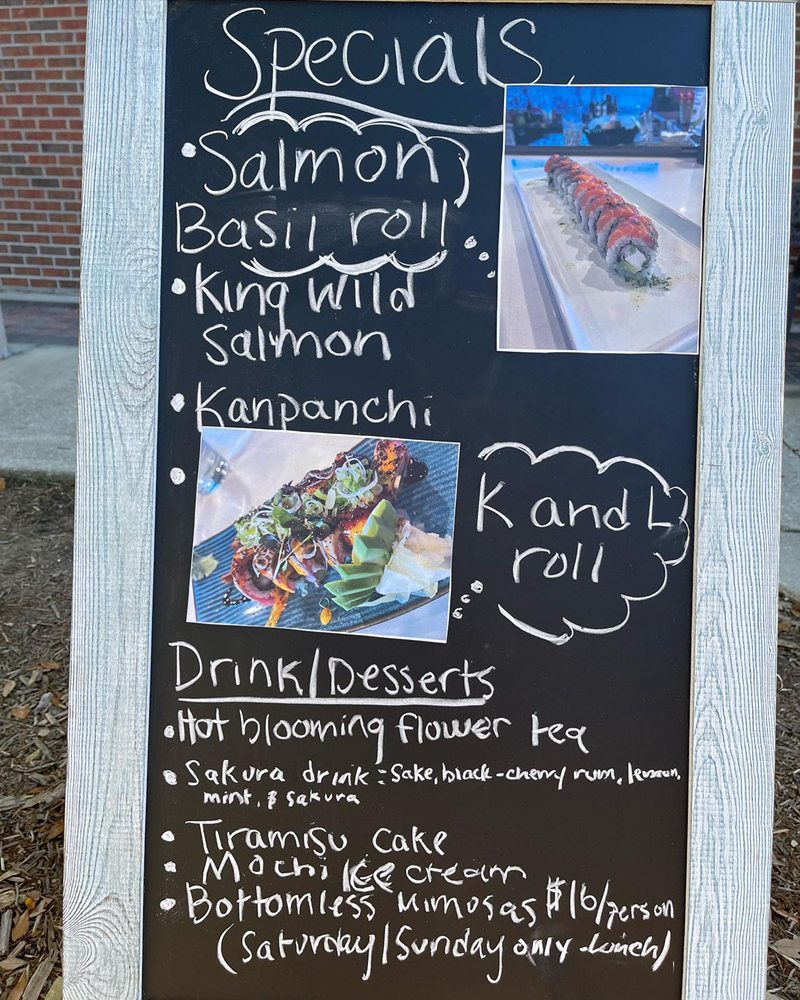 Specials
• Salmon
Basil roll
• King Wild
Salmon
• Kanpanchi
•
K and L
roll
Drink/Desserts
• Hot blooming flower tea
• Sakura drink: Sake, black-cherry rum, lemon,
mint, & sakura
• Tiramisu cake
• Mochi ICE cream
• Bottomless Mimosas $16/person
(Saturday/Sunday only lunch)